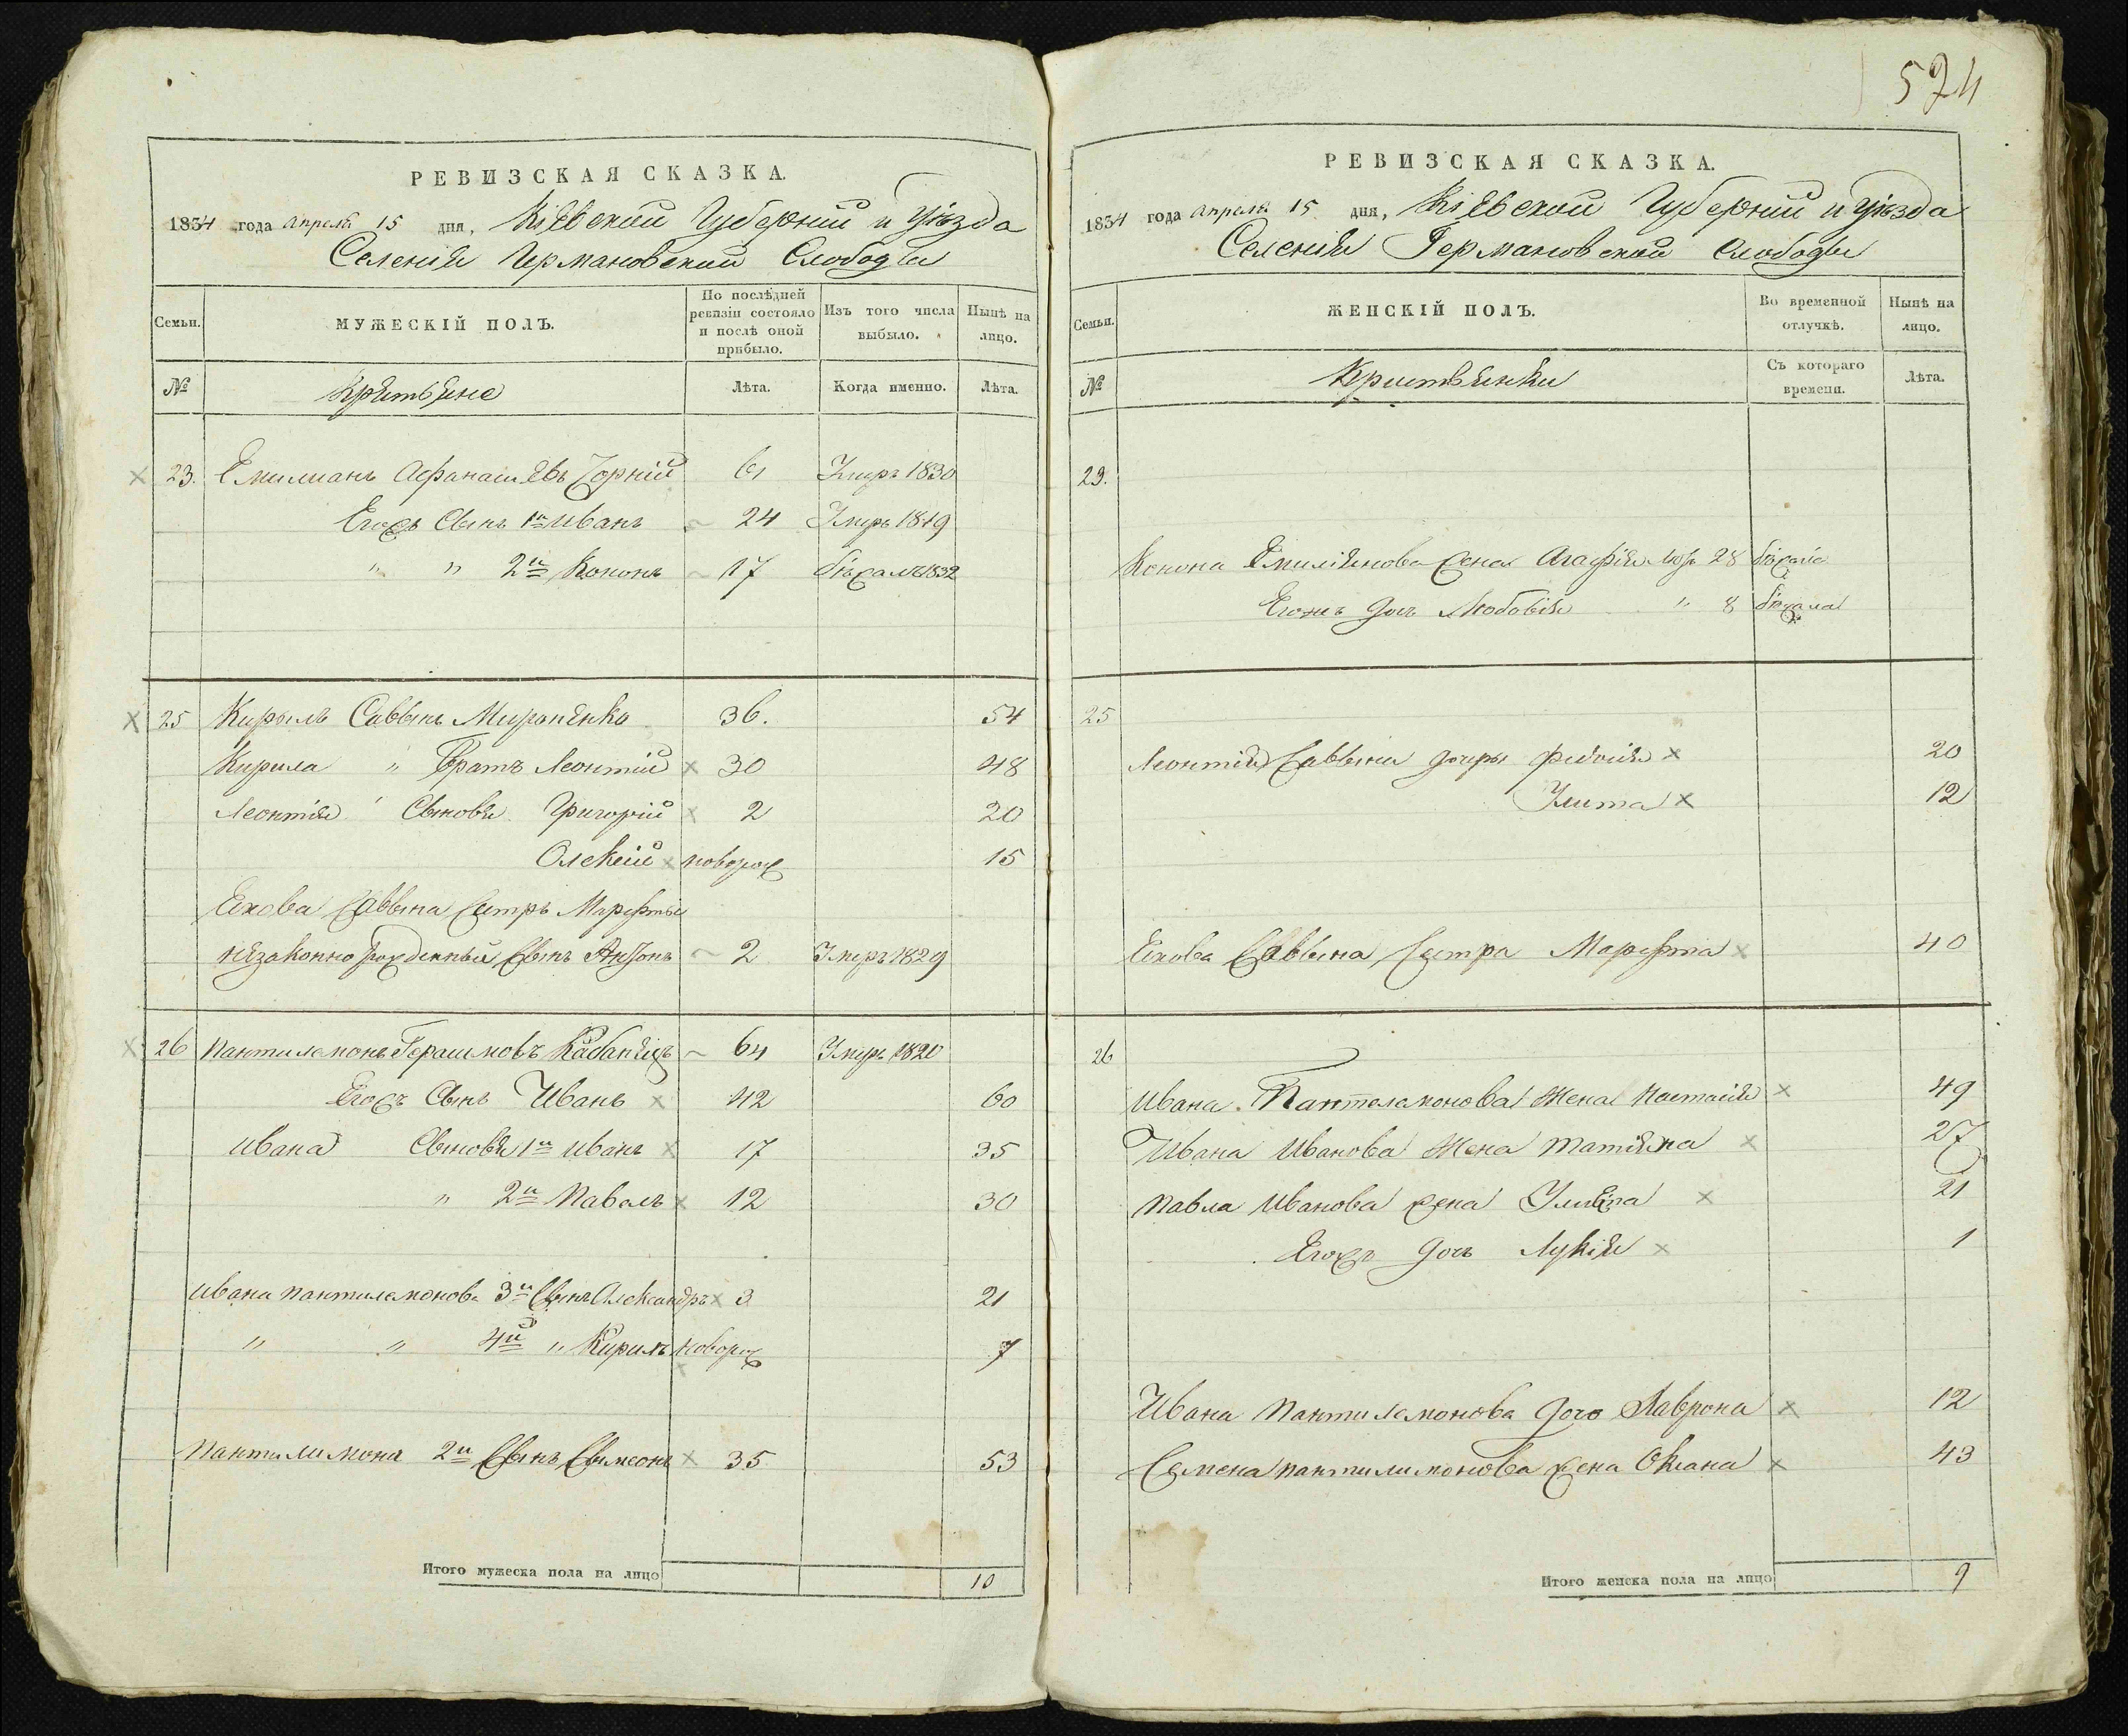 574
РЕВИЗСКАЯ СКАЗКА.
1834 года апреля 15 дня, Кіевской Губерніи и Уѣзда
Селенія Германовской Слободы
Семьи.
МУЖЕСКІЙ ПОЛЪ.
По послѣдней ревизіи состояло и послѣ оной прибыло.
Изъ того числа выбыло.
Нынѣ на лицо.
№
Лѣта.
Когда именно.
Лѣта.
23. Емилианъ Афанасиевъ Чорній 61 Умеръ 1830
Егожъ Сынъ 1й Иванъ 24 Умеръ 1819
" " 2й Кононъ 17 бѣжалъ 1832
25 Кирилъ Саввинъ Миронѣнко 36. 54
Кирила " Братъ Леонтій 30 48
Леонтія Сыновя Григорій 2 20
Олексій новорож 15
Еихова Саввина Сестръ Марфты
незаконнорожденный Сынъ Антонъ 2 Умеръ 1829
26 Пантилемонъ Герасимовъ Кабанѣцъ 64 Умеръ 1820
Егожъ Сынъ Иванъ 42 60
Ивана Сыновя 1й Иванъ 17 35
" 2й Павелъ 12 30
Ивана Пантилемонова 3й Сынъ Александръ 3 21
" " 4й " Кирилъ новорож 7
Пантилимона 2й Сынъ Сымеонъ 35 53
Итого мужеска пола на лицо 10
РЕВИЗСКАЯ СКАЗКА.
1834 года апреля 15 дня, Кіевской Губерніи и Уѣзда
Селенія Германовской Слободы
Семьи.
ЖЕНСКІЙ ПОЛЪ.
Во временной отлучкѣ.
Нынѣ на лицо.
№
Съ котораго времени.
Лѣта.
29.
Конона Емиліянова жена Агафія 28 бѣжала
Егожъ дочь Любовія " 8 бѣжала
25
Леонтія Саввина дочеры Федосія 20
Улита 12
Еихова Саввина Сестра Марфта 40
26
Ивана Пантелемонова Жена Настасія 49
Ивана Иванова Жена Татіяна 27
Павла Иванова жена Улияна 21
Егожъ дочь Лукія 1
Ивана Пантилемонова дочь Лаврона 12
Семена Пантилимонова жена Оксана 43
Итого женска пола на лицо 9